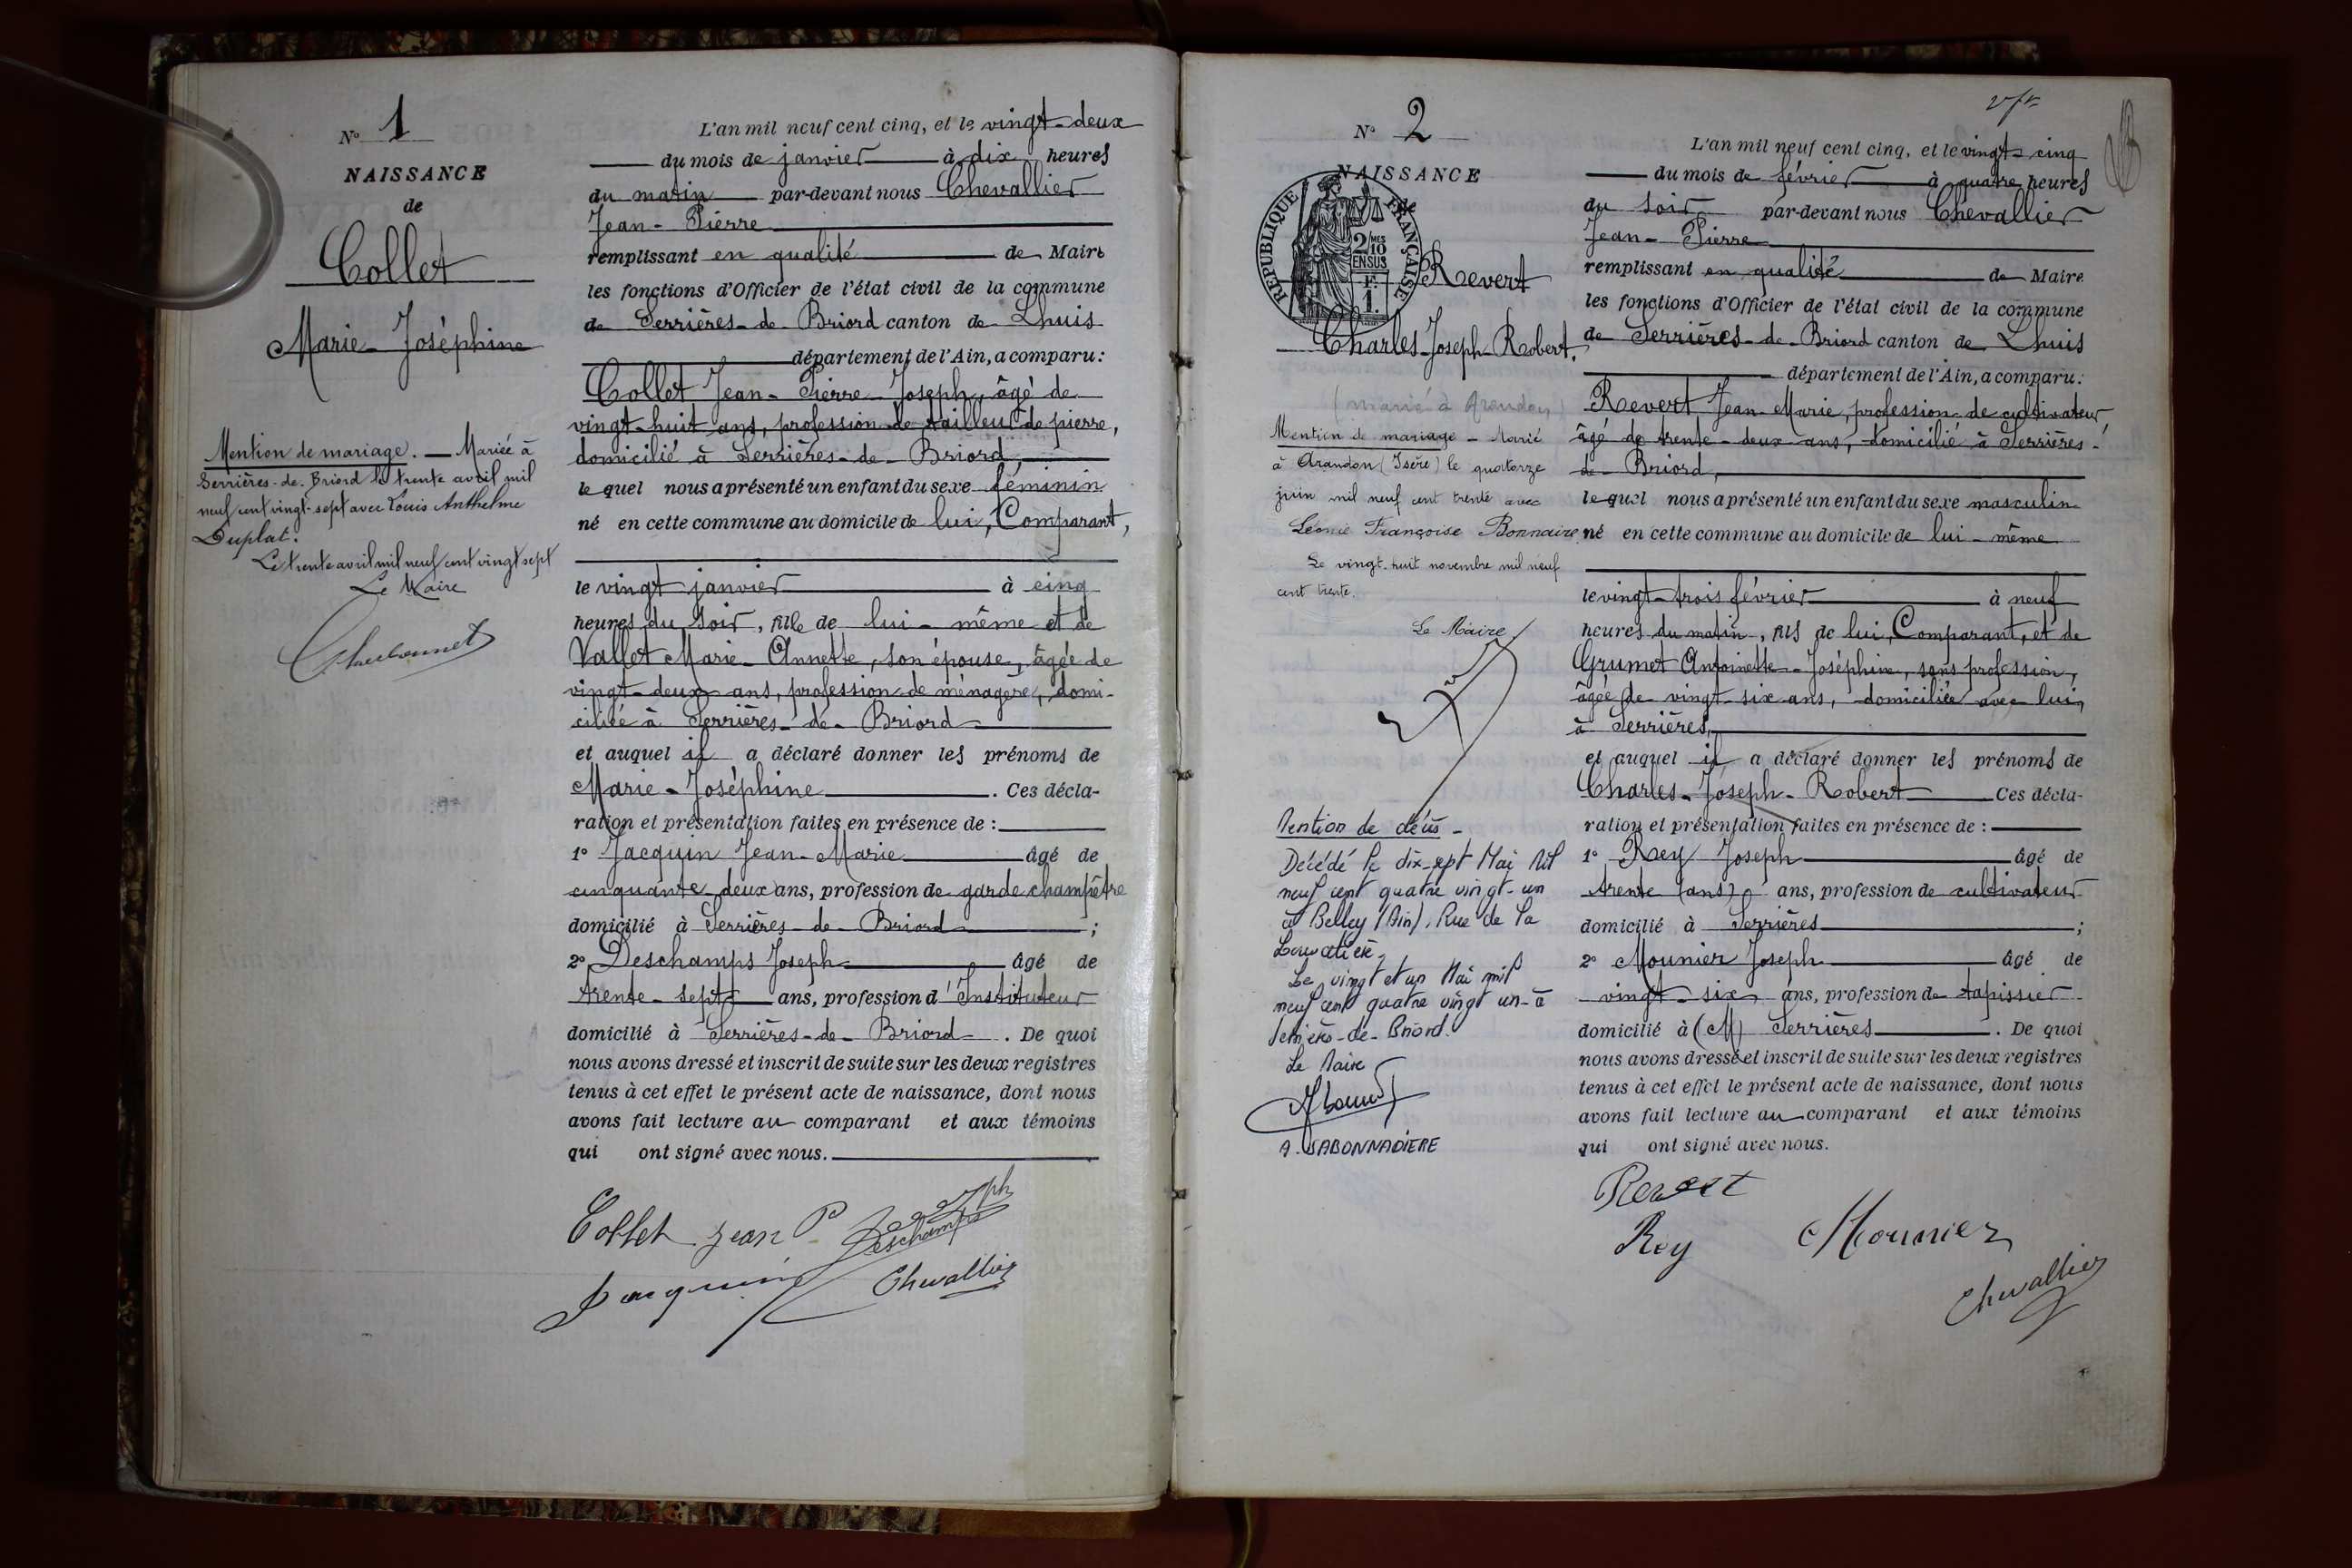 N° 1
NAISSANCE
de
Collet
Marie-Joséphine
Mention de mariage. — Mariée à
Serrières-de-Briord le trente avril mil
neuf cent vingt-sept avec Louis Anthelme
Duplat.
Le trente avril mil neuf cent vingt sept
Le Maire
L'an mil neuf cent cinq, et le vingt-deux
du mois de janvier à dix heures
du matin par-devant nous Chevallier
Jean-Pierre
remplissant en qualité de Maire
les fonctions d'Officier de l'état civil de la commune
de Serrières-de-Briord canton de Lhuis
département de l'Ain, a comparu :
Collet Jean-Pierre-Joseph, âgé de
vingt-huit ans, profession de tailleur de pierre,
domicilié à Serrières-de-Briord,
lequel nous a présenté un enfant du sexe féminin
né en cette commune au domicile de lui, Comparant,
le vingt janvier à cinq
heures du soir, fille de lui-même et de
Vallet Marie-Annette, son épouse, âgée de
vingt-deux ans, profession de ménagère, domi-
ciliée à Serrières-de-Briord
et auquel il a déclaré donner les prénoms de
Marie-Joséphine. Ces décla-
ration et présentation faites en présence de :
1° Jacquin Jean-Marie âgé de
cinquante-deux ans, profession de garde champêtre
domicilié à Serrières-de-Briord ;
2° Deschamps Joseph âgé de
trente-sept ans, profession d'Instituteur
domicilié à Serrières-de-Briord. De quoi
nous avons dressé et inscrit de suite sur les deux registres
tenus à cet effet le présent acte de naissance, dont nous
avons fait lecture au comparant et aux témoins
qui ont signé avec nous.
Collet Jean P Joseph
Deschamps
Jacquin Chevallier
N° 2
NAISSANCE
de
REPUBLIQUE FRANÇAISE
2/10 MES
EN SUS
F.
1.
Revert
Charles-Joseph-Robert.
(marié à Arandon)
Mention de mariage - Marié
à Arandon (Isère) le quatorze
juin mil neuf cent trente avec
Léonie Françoise Bonnaire.
Le vingt-huit novembre mil neuf
cent trente.
Le Maire
Mention de décès -
Décédé le dix-sept Mai Mil
neuf cent quatre vingt-un
à Belley (Ain), Rue de la
Le vingt et un Mai mil
neuf cent quatre vingt un - à
Serrières-de-Briord.
Le Maire
A. SABONNADIERE
L'an mil neuf cent cinq, et le vingt-cinq
du mois de février à quatre heures
du soir par-devant nous Chevallier
Jean-Pierre
remplissant en qualité de Maire
les fonctions d'Officier de l'état civil de la commune
de Serrières-de-Briord canton de Lhuis
département de l'Ain, a comparu :
Revert Jean-Marie, profession de cultivateur
âgé de trente-deux ans, domicilié à Serrières-
de-Briord,
lequel nous a présenté un enfant du sexe masculin
né en cette commune au domicile de lui-même
le vingt-trois février à neuf
heures du matin, fils de lui, Comparant, et de
Grumet Antoinette-Joséphine, sans profession,
âgée de vingt-six ans, domiciliée avec lui,
à Serrières,
et auquel il a déclaré donner les prénoms de
Charles-Joseph-Robert Ces décla-
ration et présentation faites en présence de :
1° Rey Joseph âgé de
trente (ans) ans, profession de cultivateur
domicilié à Serrières ;
2° Mounier Joseph âgé de
vingt-six ans, profession de tapissier
domicilié à (M) Serrières. De quoi
nous avons dressé et inscrit de suite sur les deux registres
tenus à cet effet le présent acte de naissance, dont nous
avons fait lecture au comparant et aux témoins
qui ont signé avec nous.
Revert
Rey Mounier
Chevallier